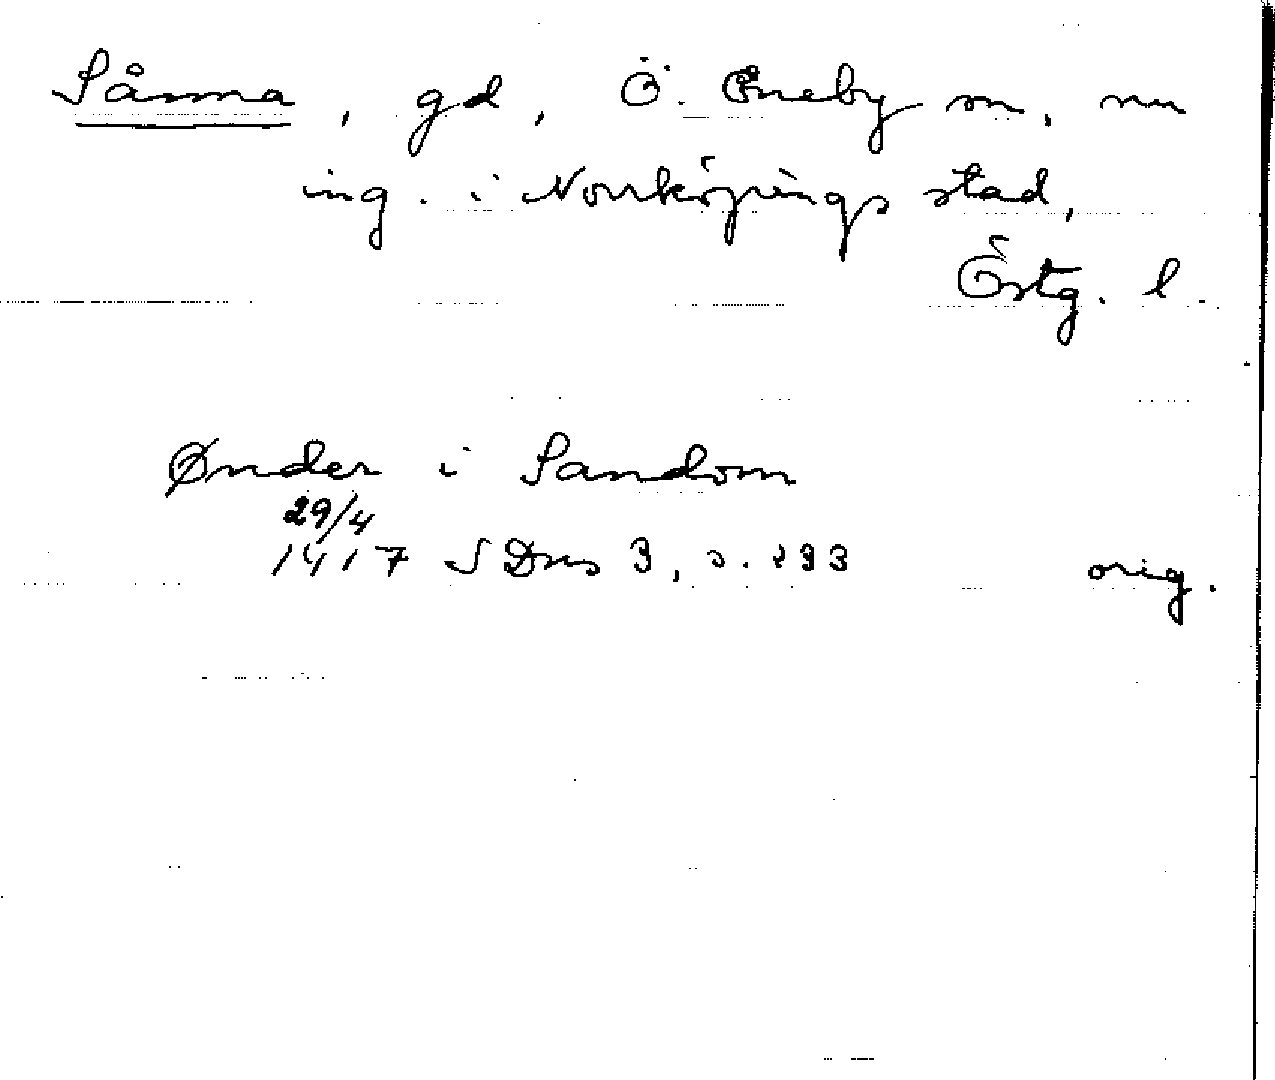 Sånna, gd, Ö. Eneby sn, nu
ing. i Norrköpings stad,
Östg. l.
Ønder i Sandom
29/4
1417 SDns 3, s. 233
orig.